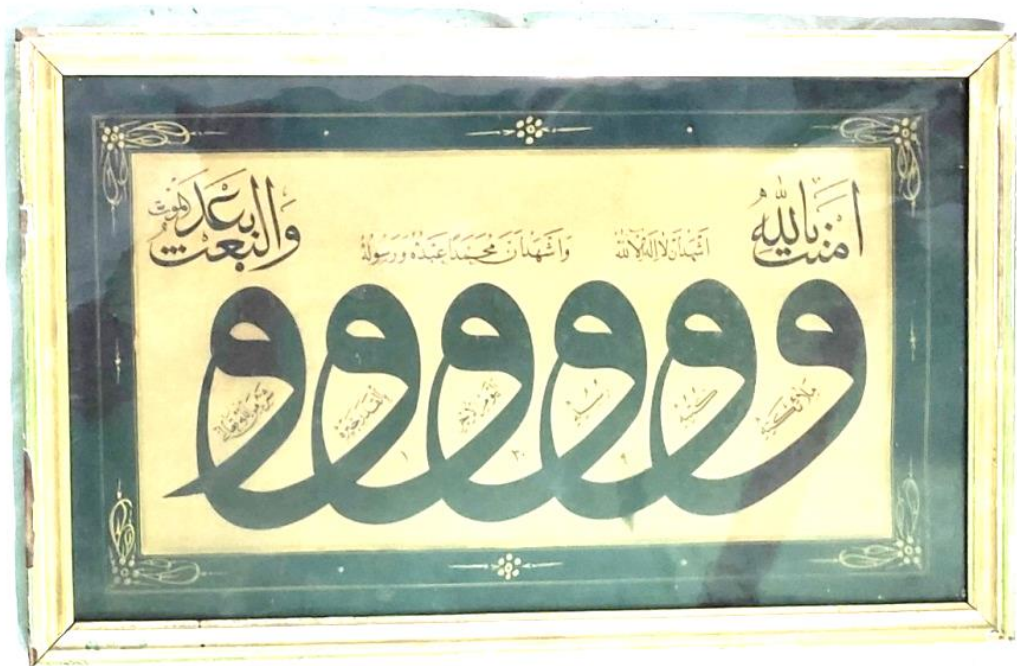 امنت بالله
اشهد ان لا اله الا الله واشهد ان محمدا عبده ورسوله
والبعث بعد الموت
و و و و و و
ملائكته كتبه رسله اليوم الاخر القدر خيره شره من الله تعالى
١٣٠٩